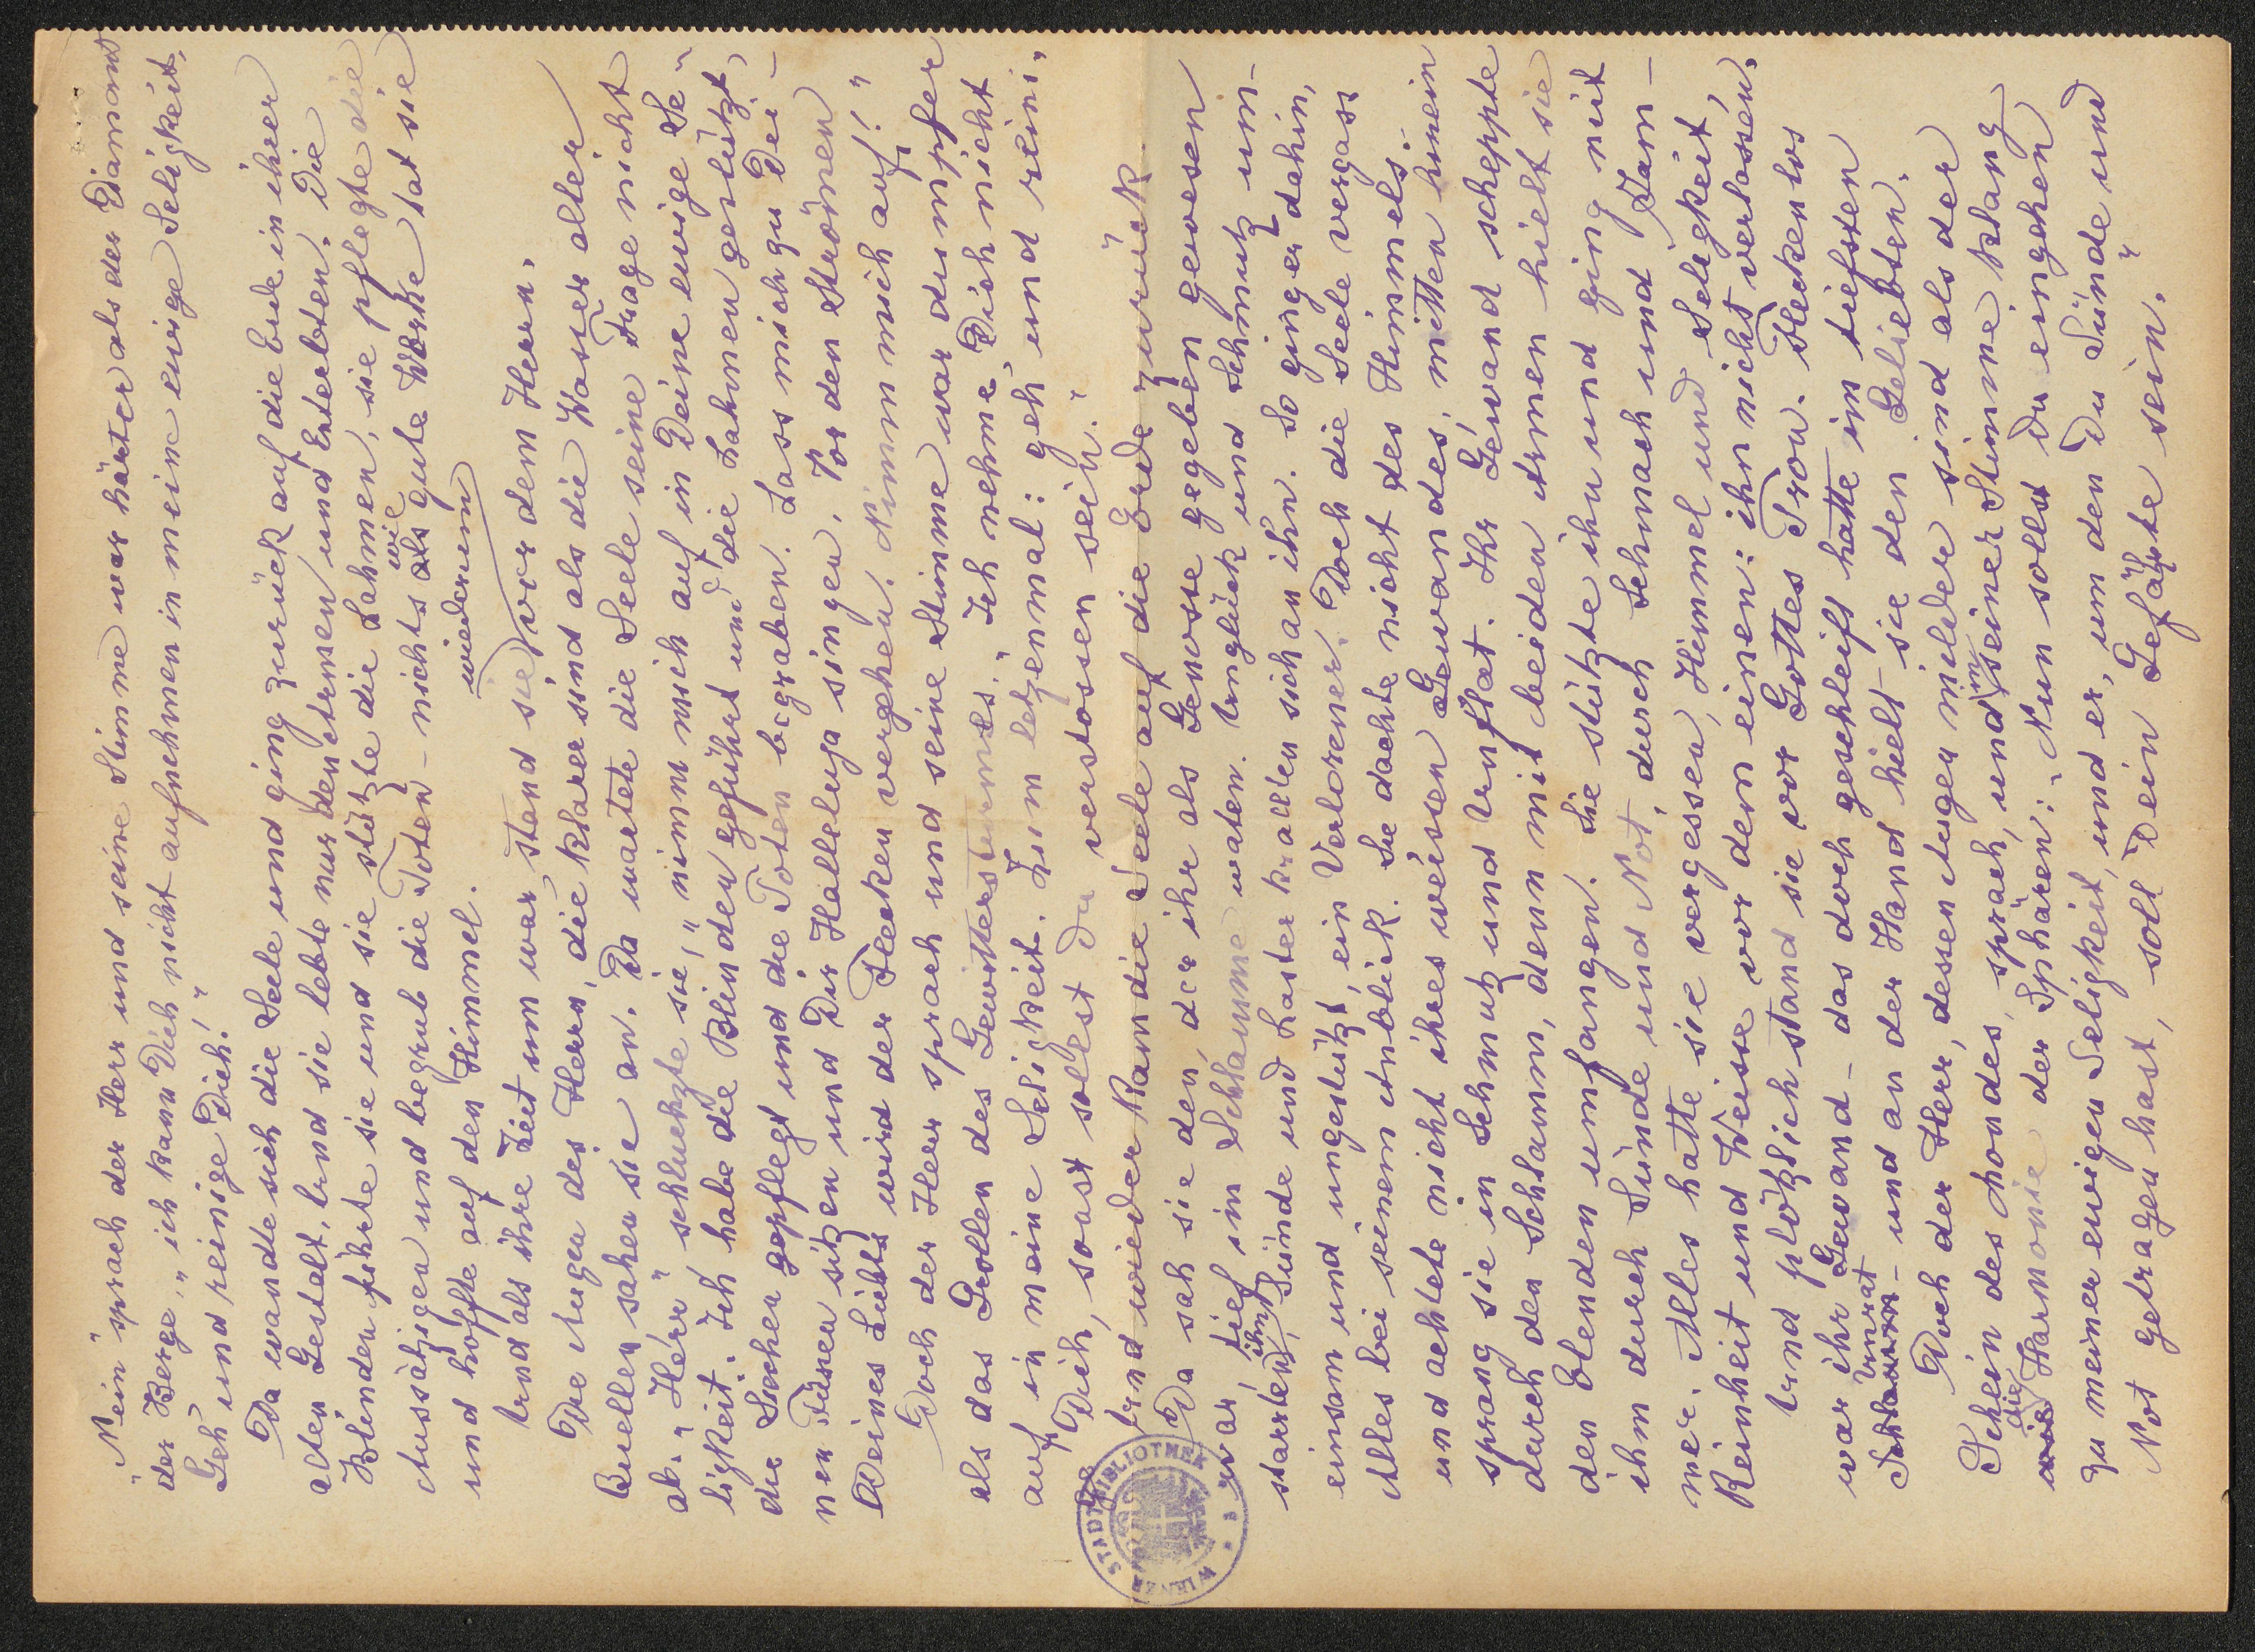 „Nein" sprach der Herr und seine Stimme war härter als der Diamant
der Berge, „ich kann Dich nicht aufnehmen in meine ewige Seligkeit,
Geh' und reinige Dich!"
Da wandte sich die Seele und ging zurück auf die Erde in ihrer
alten Gestalt. Und sie lebte nur den Armen und Enterbten. Die
Blinden führte sie und sie stützte die Lahmen, sie pflegte die
Aussätzigen und begrub die Toten – nichts als wie gute Werke tat sie
und hoffte auf den Himmel.
Und als ihre Zeit um war, stand sie wiederum vor dem Herrn.
Die Augen des Herrn, die klarer sind als die Wasser aller
Quellen sahen sie an. Da wartete die Seele seine Frage nicht
ab. „Herr" schluchzte sie, „nimm mich auf in Deine ewige Se-
ligkeit. Ich habe die Blinden geführt und die Lahmen gestützt,
die Siechen gepflegt und die Toten begraben. Lass mich zu Dei-
nen Füssen sitzen und Dir Halleluja singen. Vor den Strömen
Deines Lichts wird der Flecken vergehen. Nimm mich auf!"
Doch der Herr sprach und seine Stimme war dumpfer
als das Grollen des Gewittersturmes. „Ich nehme Dich nicht
auf in meine Seligkeit. Zum letzenmal: geh' und reini,
ge Dich, sonst sollst du verstossen sein."
Und wieder kam die Seele auf die Erde zurück.
Da sah sie den, der ihr als Genosse gegeben gewesen
war, tief im Schlamme waten. Unglück und Schmutz um-
starrten ihn, Sünde und Laster krallten sich an ihn. So ging er dahin,
einsam und ungestützt, ein Verlorener. Doch die Seele vergass
Alles bei seinem Anblick. Sie dachte nicht des Himmels
und achtete nicht ihres weissen Gewandes, mitten hinein
sprang sie in Schmutz und Unflat. Ihr Gewand schleppte
durch den Schlamm, denn mit beiden Armen hielt sie
den Elenden umfangen. Sie stützte ihn und ging mit
ihm durch Sünde und Not, durch Schmach und Jam-
mer. Alles hatte sie vergessen, Himmel und Seligkeit,
Reinheit und Weisse vor dem einen: ihn nicht verlassen.
Und plötzlich stand sie vor Gottes Tron. Fleckenlos
war ihr Gewand – das doch geschleift hatte im tiefsten
Schlamm Unrat – und an der Hand hielt sie den Geliebten.
Doch der Herr, dessen Augen milder sind als der
Schein des Mondes, sprach, und in seiner Stimme klang
wie die Harmonie der Sphären: „Nun sollst Du eingehen
zu meiner ewigen Seligkeit, und er, um den Du Sünde und
Not getragen hast, soll Dein Gefährte sein."
STADTBIBLIOTHEK
WIENER